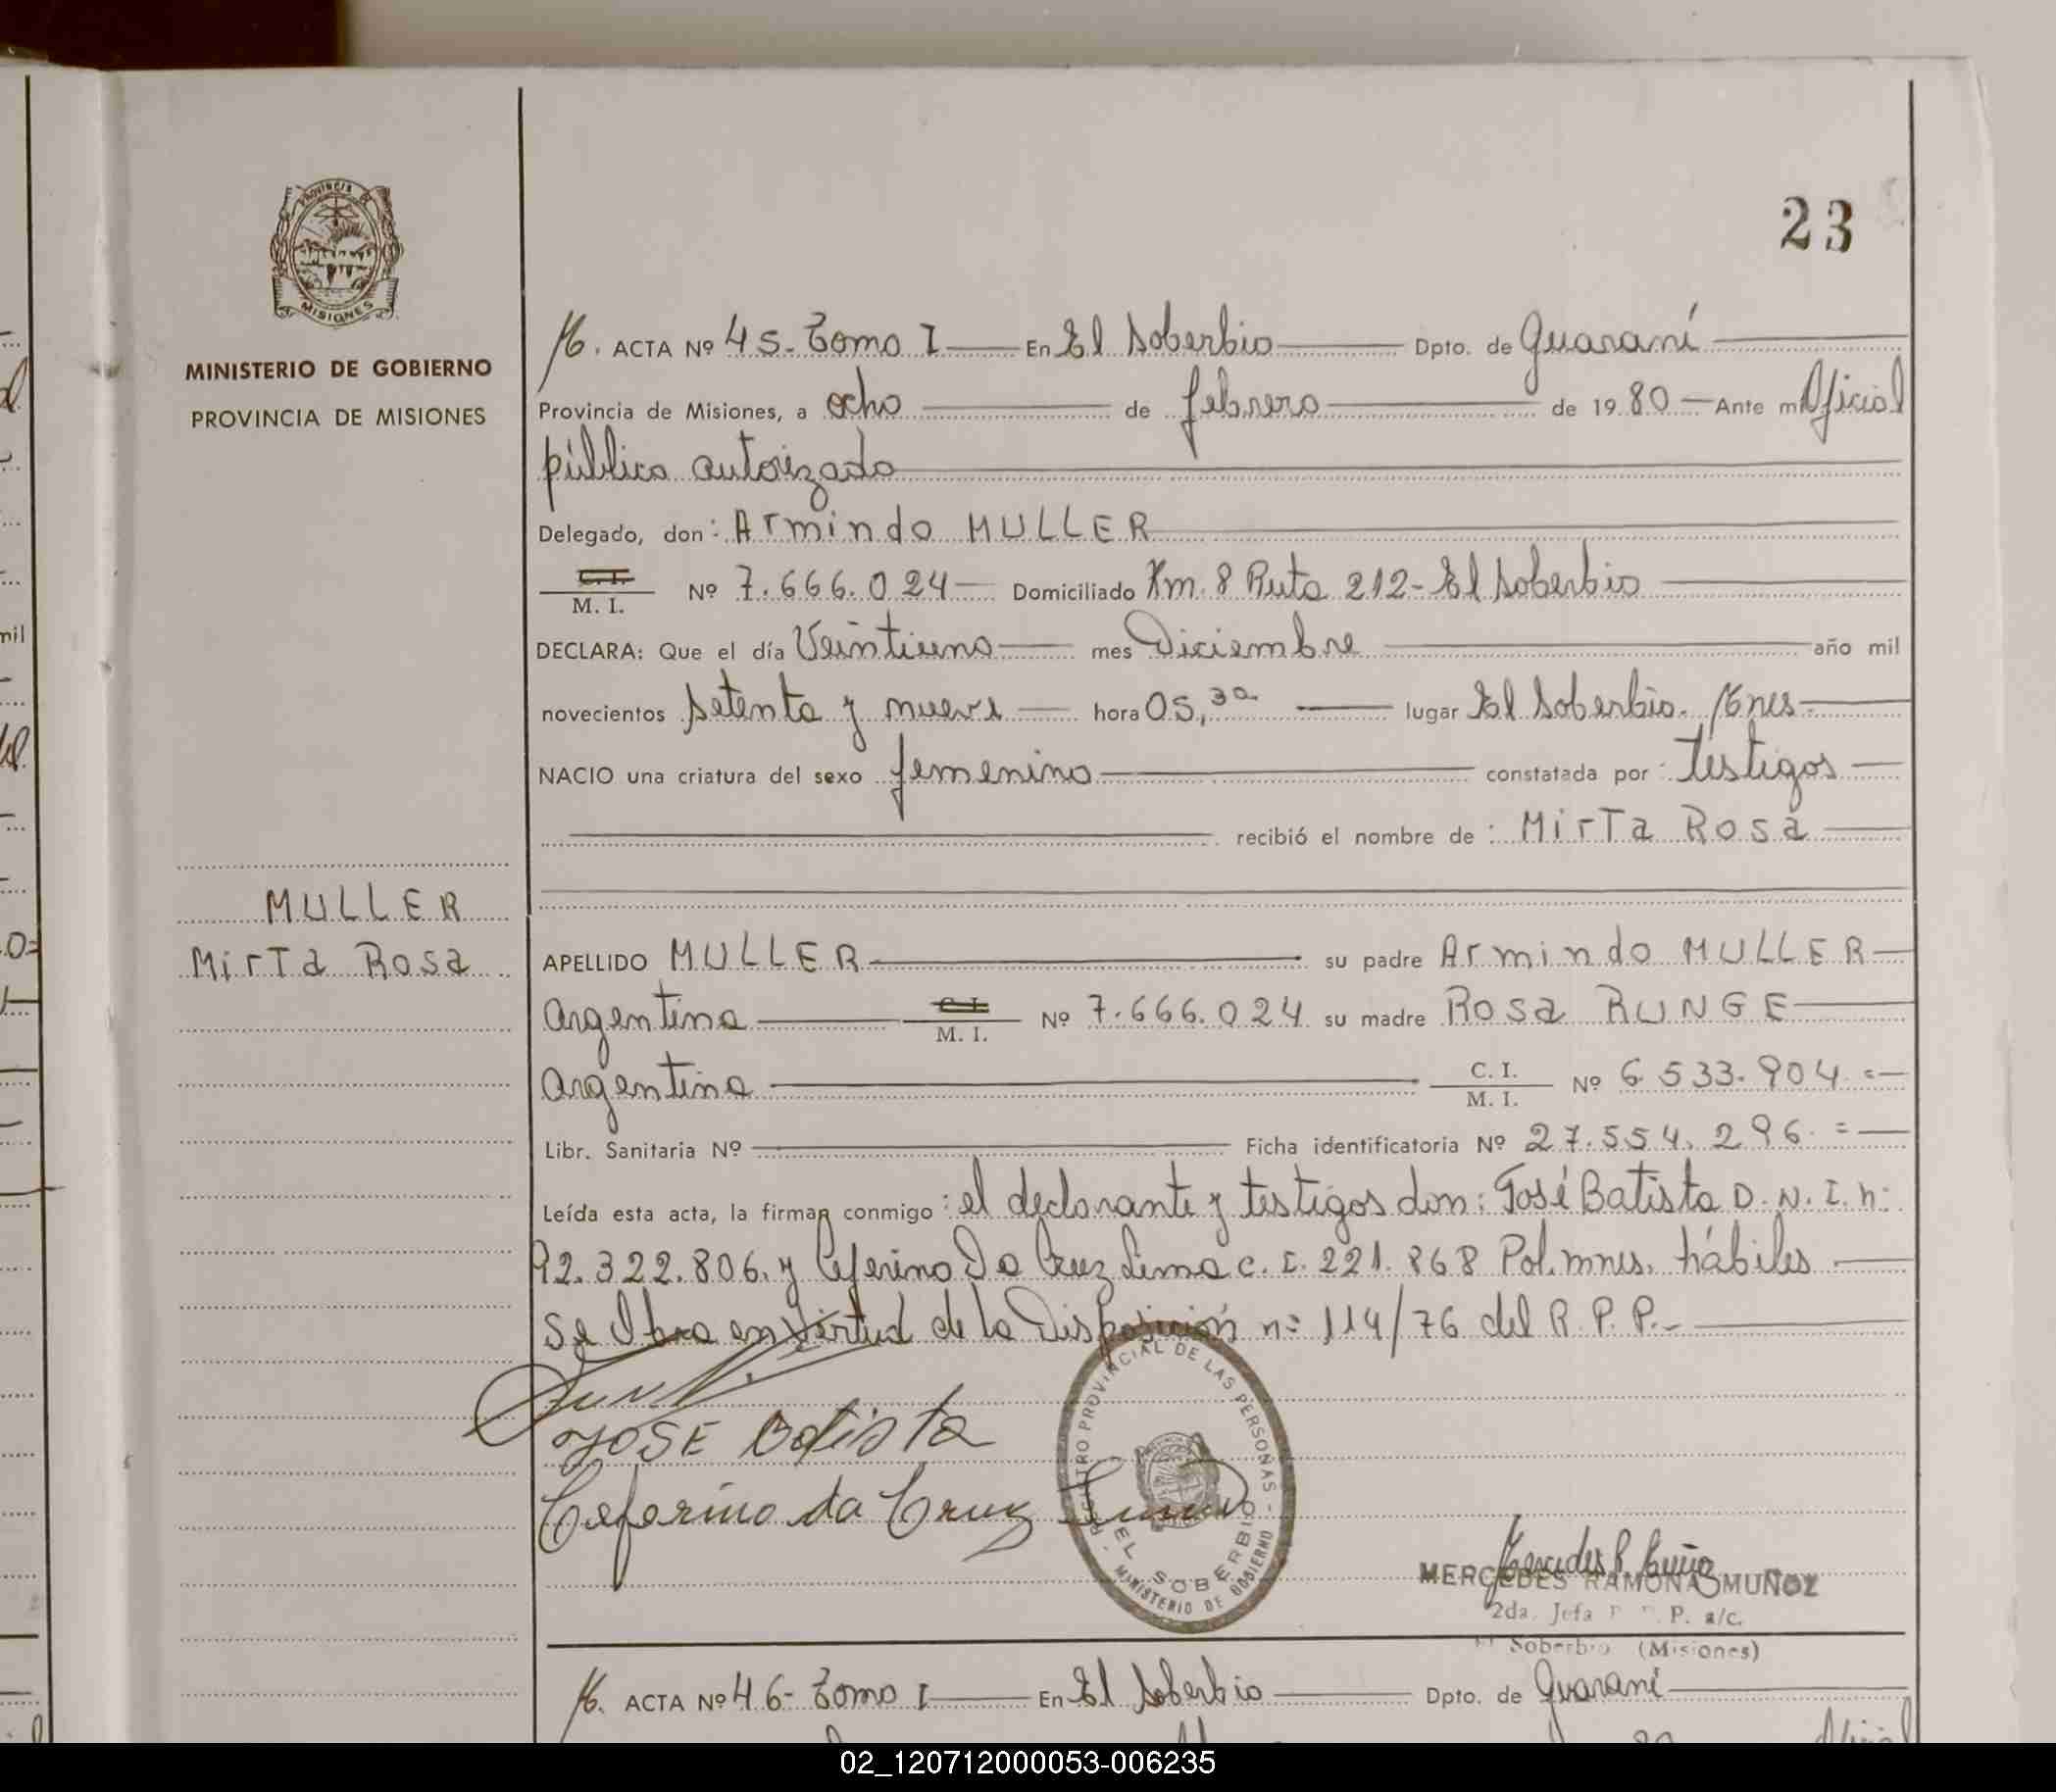 23
MINISTERIO DE GOBIERNO
PROVINCIA DE MISIONES
MULLER
Mirta Rosa
ACTA Nº 45-Tomo I En El Soberbio Dpto. de Guaraní
Provincia de Misiones, a ocho de febrero de 1980 Ante mi Oficial
público autorizado
Delegado, don: Armindo MULLER
C. I.
M. I. Nº 7.666.024 Domiciliado Km. 8 Ruta 212-El Soberbio
DECLARA: Que el día Veintiuno mes Diciembre año mil
novecientos setenta y nueve hora 05,30 lugar El Soberbio.
NACIO una criatura del sexo femenino constatada por: testigos
recibió el nombre de: Mirta Rosa
APELLIDO MULLER su padre Armindo MULLER
Argentina C. I. M. I. Nº 7.666.024 su madre Rosa RUNGE
Argentina C. I. M. I. Nº 6.533.904.=
Libr. Sanitaria Nº Ficha identificatoria Nº 27.554.296.=
Leída esta acta, la firman conmigo: el declarante y testigos don: José Batista D.N.I. n:
92.322.806. y Ceferino Da Cruz Lima C.I. 221.868 Pol. mnes. hábiles
Se Obra en virtud de la Disposición n= 114/76 del R.P.P.-
JOSE Batista
Ceferino da Cruz Lima
REGISTRO PROVINCIAL DE LAS PERSONAS - EL SOBERBIO - MINISTERIO DE GOBIERNO
MERCEDES RAMONA MUÑOZ
2da. Jefa P. a/c.
El Soberbio (Misiones)
ACTA Nº 46-Tomo I En El Soberbio Dpto. de Guaraní
02_120712000053-006235